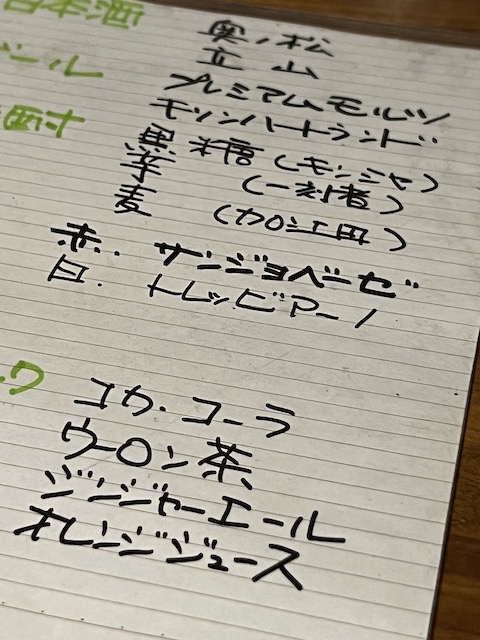 日本酒 奥ノ松
立山
ール プレミアムモルツ
キリンハートランド
酎 黒糖(キンジャ)
芋 (一刻者)
麦 (加江田)
赤. サンジョベーゼ
白. トレッビアーノ
ク コカ・コーラ
ウーロン茶
ジンジャーエール
オレンジジュース